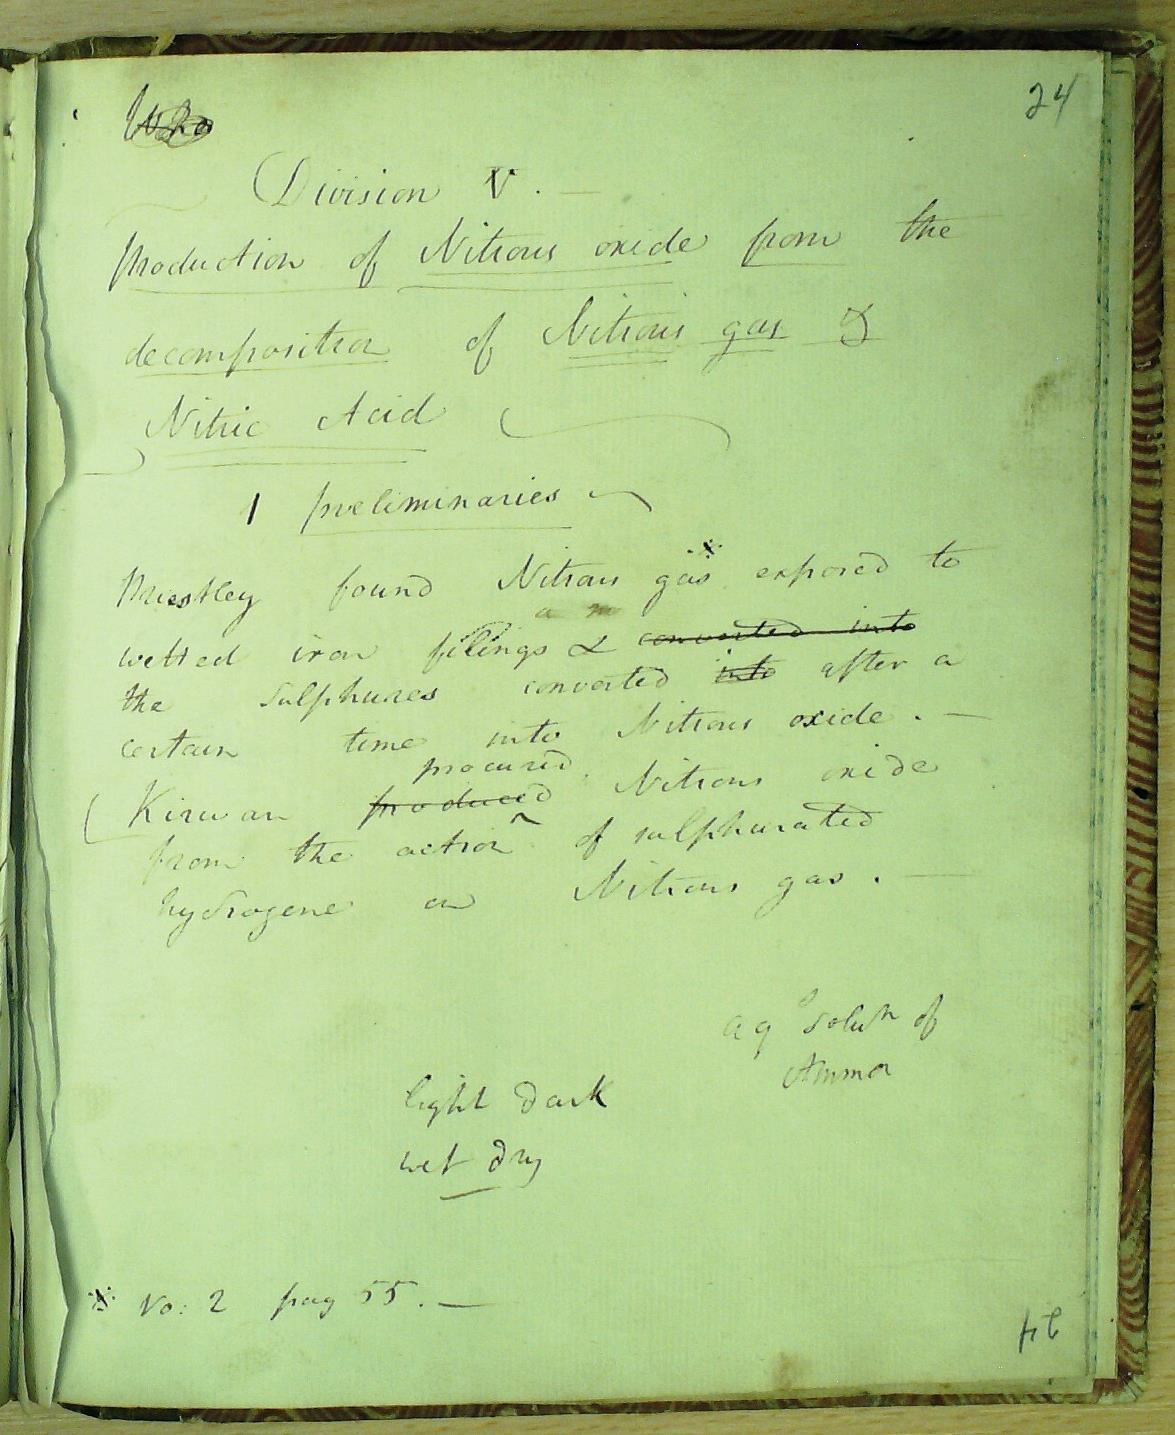 24
Division V. —
Production of Nitrous oxide from the
decomposition of Nitrous gas &
Nitric Acid
1 preliminaries
Priestley found Nitrous gas* exposed to
wetted iron filings & converted into
the sulphures converted into after a
certain time into Nitrous oxide. —
procured
Kirwan produced Nitrous oxide
from the action of sulphurated
hydrogene on Nitrous gas. —
aq solun of
Ammoa
light dark
wet dry
* Vo: 2 pag 55. —
24